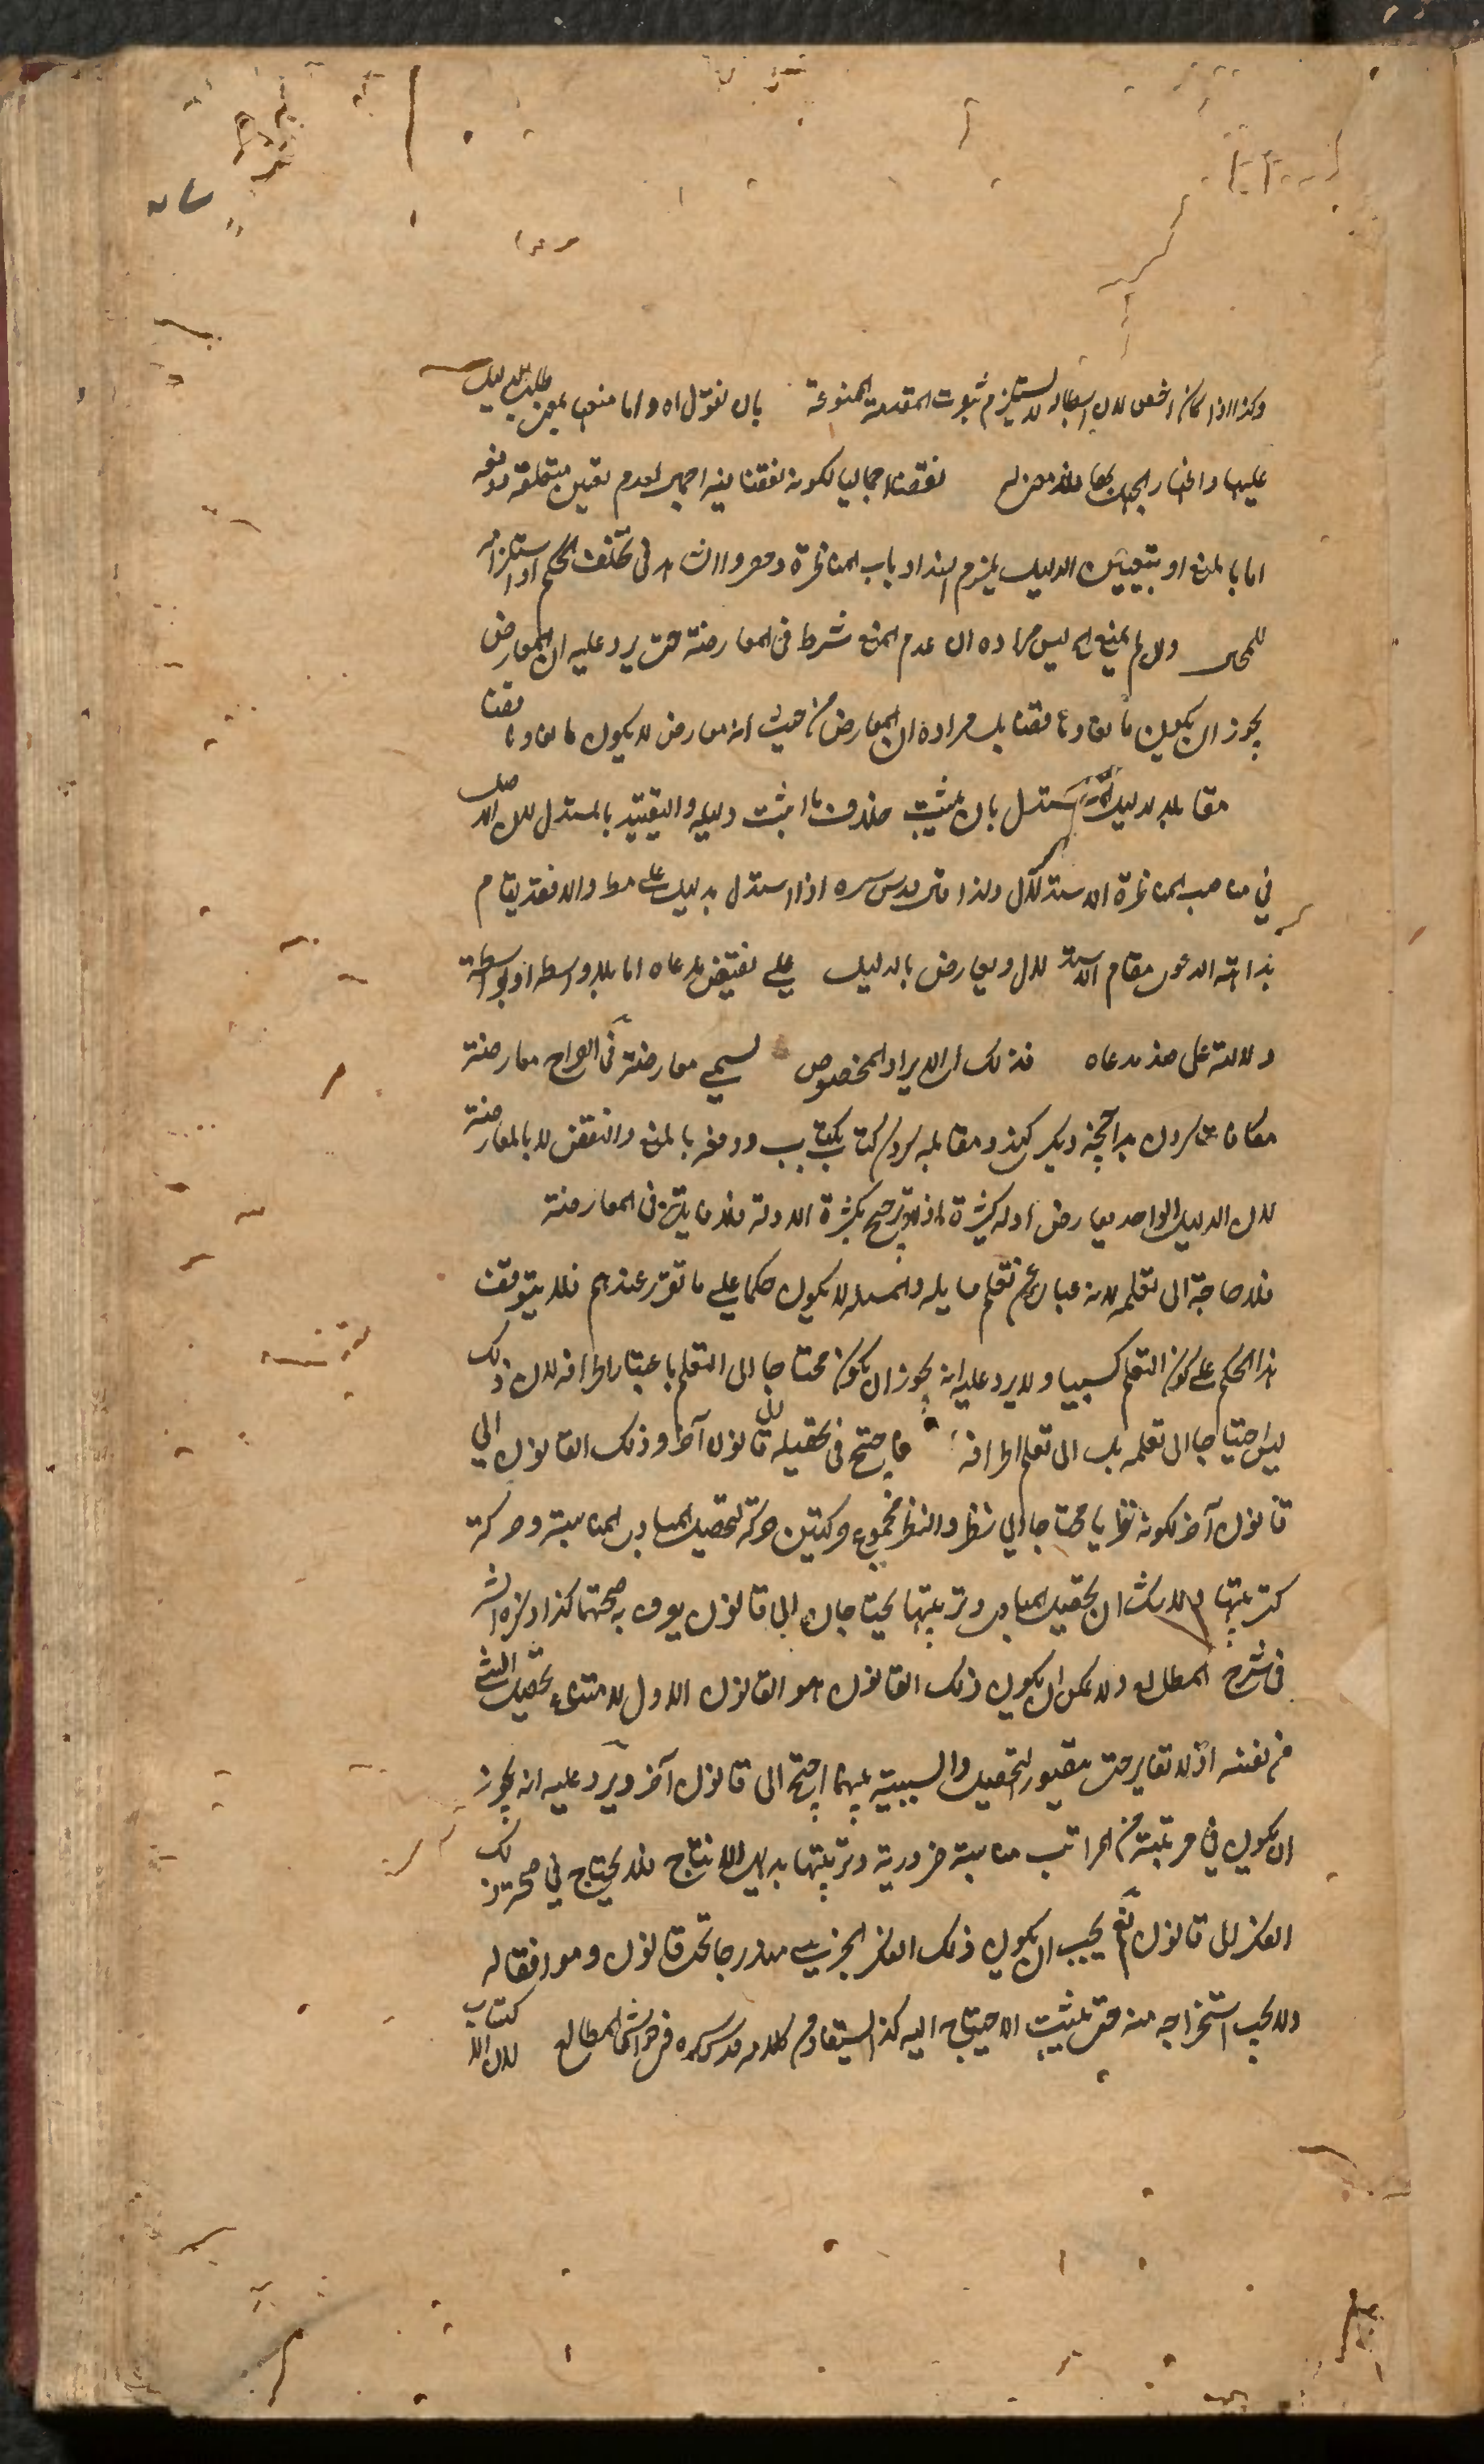 وكذا اذا كان اخص لان ابطاله لا يستلزم ثبوت المقدمة الممنوعة بان نقول اه واما منعها بمعنى طلب الدليل
عليها نقضا اجماليا لكونه نقضا فيه اجمال لعدم تعين متعلقه ودفعه
اما بالمنع او بتعيين الدليل يلزم انسداد باب المناظرة في تخلف الحكم او استلزامه
للمحال وان لم يمنع اه ليس مراده ان عدم المنع شرط في المعارضة حتى يرد عليه ان المعارض
يجوز ان يكون مانعا وناقضا بل مراده ان المعارض من حيث انه معارض لا يكون مانعا وناقضا
مقابله لدليل المستدل بان يثبت خلاف ما اثبت دليله والتقييد بالمستدل لان الاصل
في مناصب المناظرة الاستدلال ولذا قال قدس سره اذا استدل بدليل على مط والا فقد يقام
بداهة الدعوى مقام الاستدلال ويعارض بالدليل على نقيض مدعاه اما بلا واسطة او بواسطة
دلالته على ضد مدعاه فذلك اى الايراد المخصوص يسمى معارضة في الصراح معارضة
كردن بدانچه ديكر كند ومقابله كردن كتاب بكتاب ودفعه بالمنع والنقض لا بالمعارضة
لان الدليل الواحد يعارض ادلة كثيرة اذ لا ترجيح بكثرة الادلة فلا فائدة في المعارضة
فلا حاجة الى تعلمه لانه عبارة عن تعلم مسايله والمسئلة لا يكون حكما على ما تقرر عندهم فلا يتوقف
هذا الحكم على كون التعلم كسبيا ولا يرد عليه انه يجوز ان يكون محتاجا الى التعلم باعتبار اطرافه لان ذلك
ليس احتياجا الى تعلمه بل الى تعلم اطرافه فاحتيج في تحصيله الى قانون آخر وذلك القانون الى
قانون آخر لكونه نظريا محتاجا الى نظر والنظر مجموع حركتين حركة لتحصيل المبادى المناسبة وحركة
لترتيبها ولا شك ان تحصيل المبادى وترتيبها يحتاجان الى قانون يعرف به صحتهما كذا ذكره الش
في شرح المطالع ولا يمكن ان يكون ذلك القانون هو القانون الاول لامتناع تحصيل الشئ
من نفسه اذ لا تغاير حتى يتصور التحصيل والسببية بينهما احتيج الى قانون آخر ويرد عليه انه يجوز
ان يكون في مرتبة من المراتب مناسبة ضرورية وترتيبها بديهى الانتاج فلا يحتاج في صحة ذلك
الفكر الى قانون نعم يجب ان يكون ذلك الفكر الجزئى مندرجا تحت قانون وموافقا له
ولا يجب استخراجه منه حتى يثبت الاحتياج اليه كذا يستفاد من كلامه قدس سره في حواشى المطالع لان الاكتساب